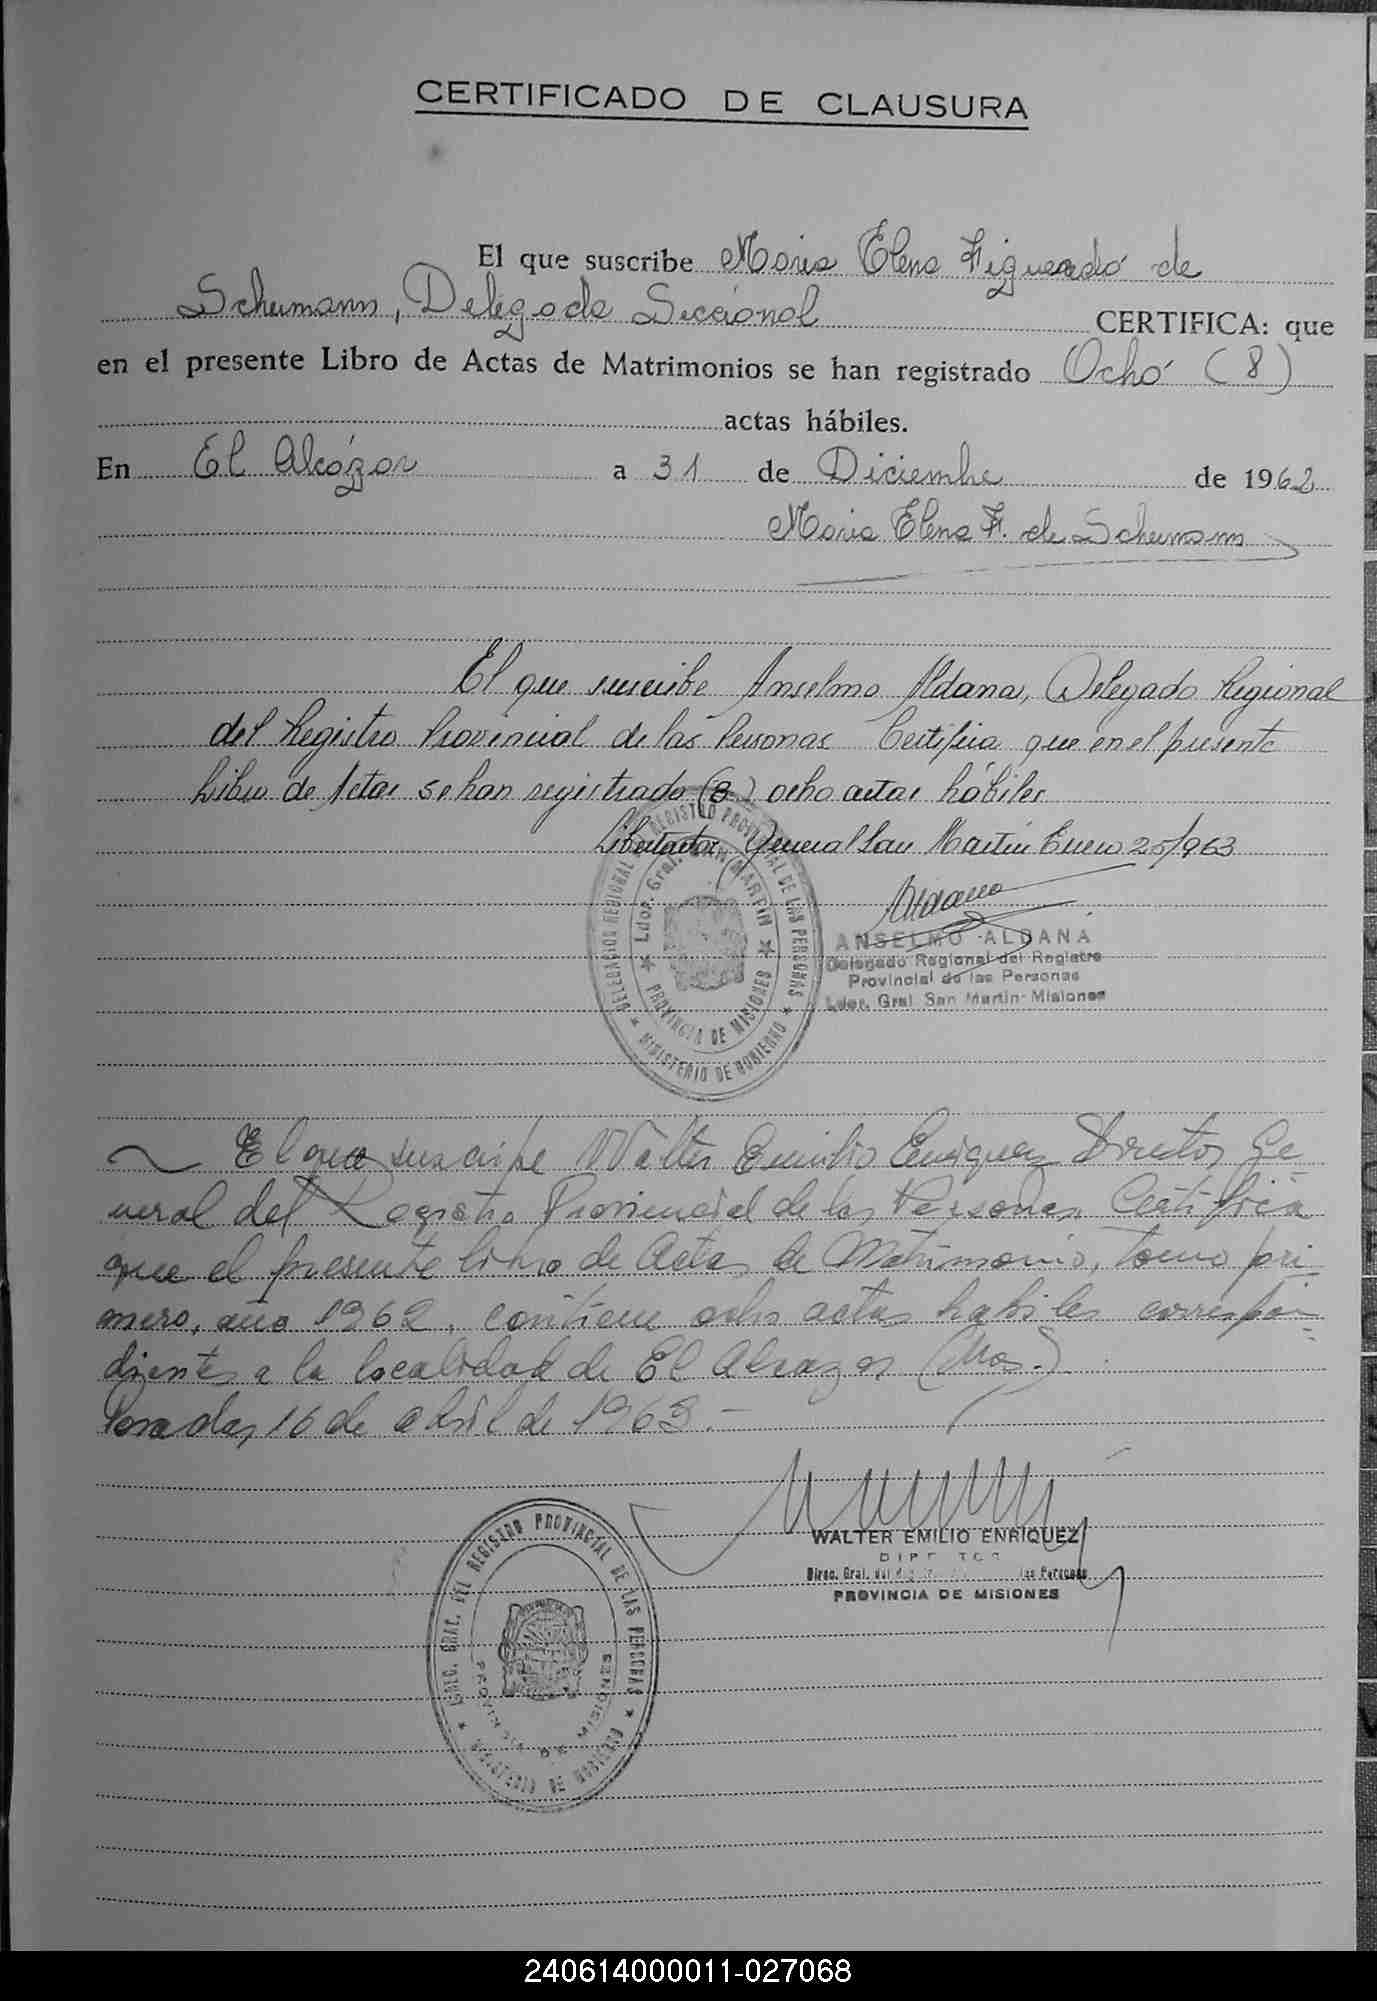 CERTIFICADO DE CLAUSURA
El que suscribe Maria Elena Figueredo de
Schumann, Delegada Seccional CERTIFICA: que
en el presente Libro de Actas de Matrimonios se han registrado Ocho (8)
actas hábiles.
En El Alcázar a 31 de Diciembre de 1962
Maria Elena F. de Schumann
El que suscribe Anselmo Aldana, Delegado Regional
del Registro Provincial de las Personas Certifica que en el presente
Libro de Actas se han registrado (8) ocho actas hábiles
Libertador General San Martín Enero 25/963
Aldana
ANSELMO ALDANA
Delegado Regional del Registro
Provincial de las Personas
Ldor. Gral San Martin - Misiones
DELEGACION REGIONAL REGISTRO PROVINCIAL DE LAS PERSONAS
Ldor. Gral. SAN MARTIN
PROVINCIA DE MISIONES
MINISTERIO DE GOBIERNO
El que suscribe Walter Emilio Enriquez Director Ge-
neral del Registro Provincial de las Personas Certifica
que el presente libro de Actas de Matrimonio, tomo pri
mero, año 1962, contiene ocho actas habiles correspon-
dientes a la localidad de El Alcazar (Mnes.)
Posadas, 16 de abril de 1963.-
WALTER EMILIO ENRIQUEZ
DIRECTOR
Direc. Gral. del las Personas
PROVINCIA DE MISIONES
DIREC. GRAL. DEL REGISTRO PROVINCIAL DE LAS PERSONAS
PROVINCIA DE MISIONES
MINISTERIO DE GOBIERNO
240614000011-027068